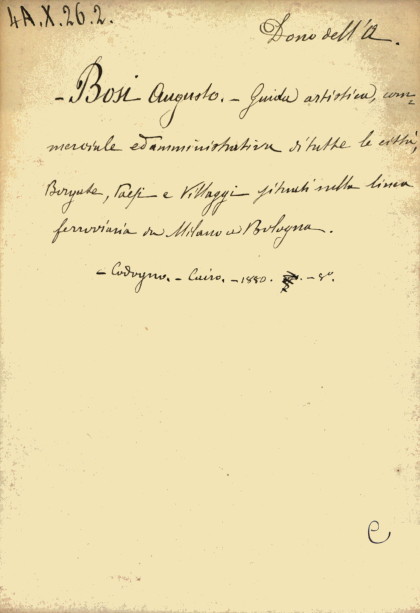 4A.X.26.2.
Dono dell'A.
- Bosi Augusto. - Guida artistica, com=
merciale ed amministrativa di tutte le città,
Borgate, Paesi e Villaggi situati nella linea
ferroviaria da Milano a Bologna.
- Codogno. - Cairo. - 1880. - 8°.
C